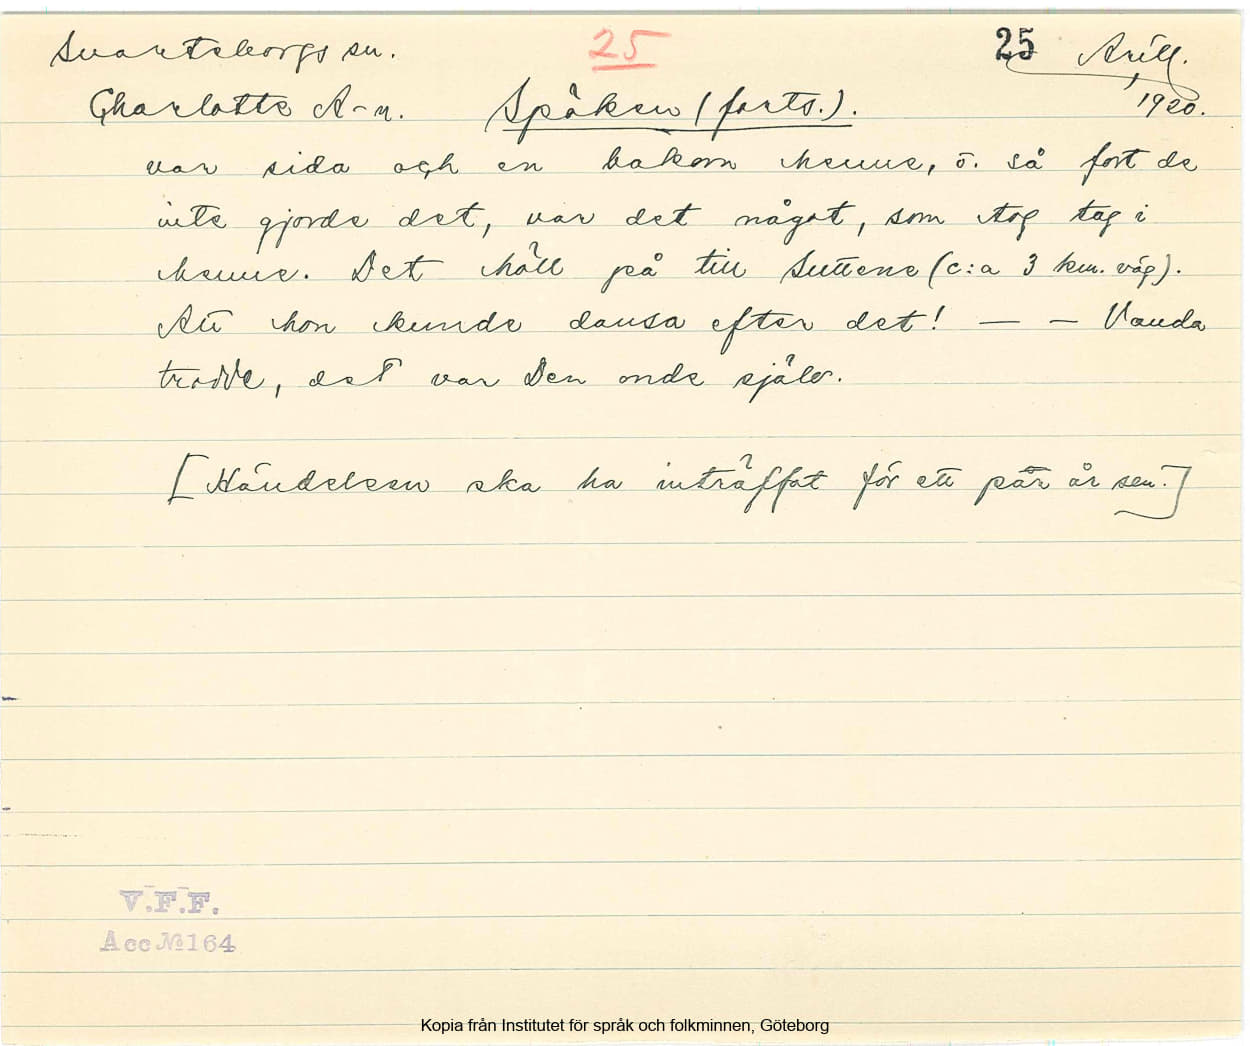 Svarteborgs sn. 25 25 Arill.
Charlotte A-n. Spöken (forts.). 1920.
var sida och en bakom henne, o. så fort de
inte gjorde det, var det något, som tog tag i
henne. Det höll på till Suttene (c:a 3 km. väg).
Att hon kunde dansa efter det! — — Vanda
trodde, det var Den onde själv.
[Händelsen ska ha inträffat för ett par år sen.]
V.F.F.
Acc № 164
Kopia från Institutet för språk och folkminnen, Göteborg